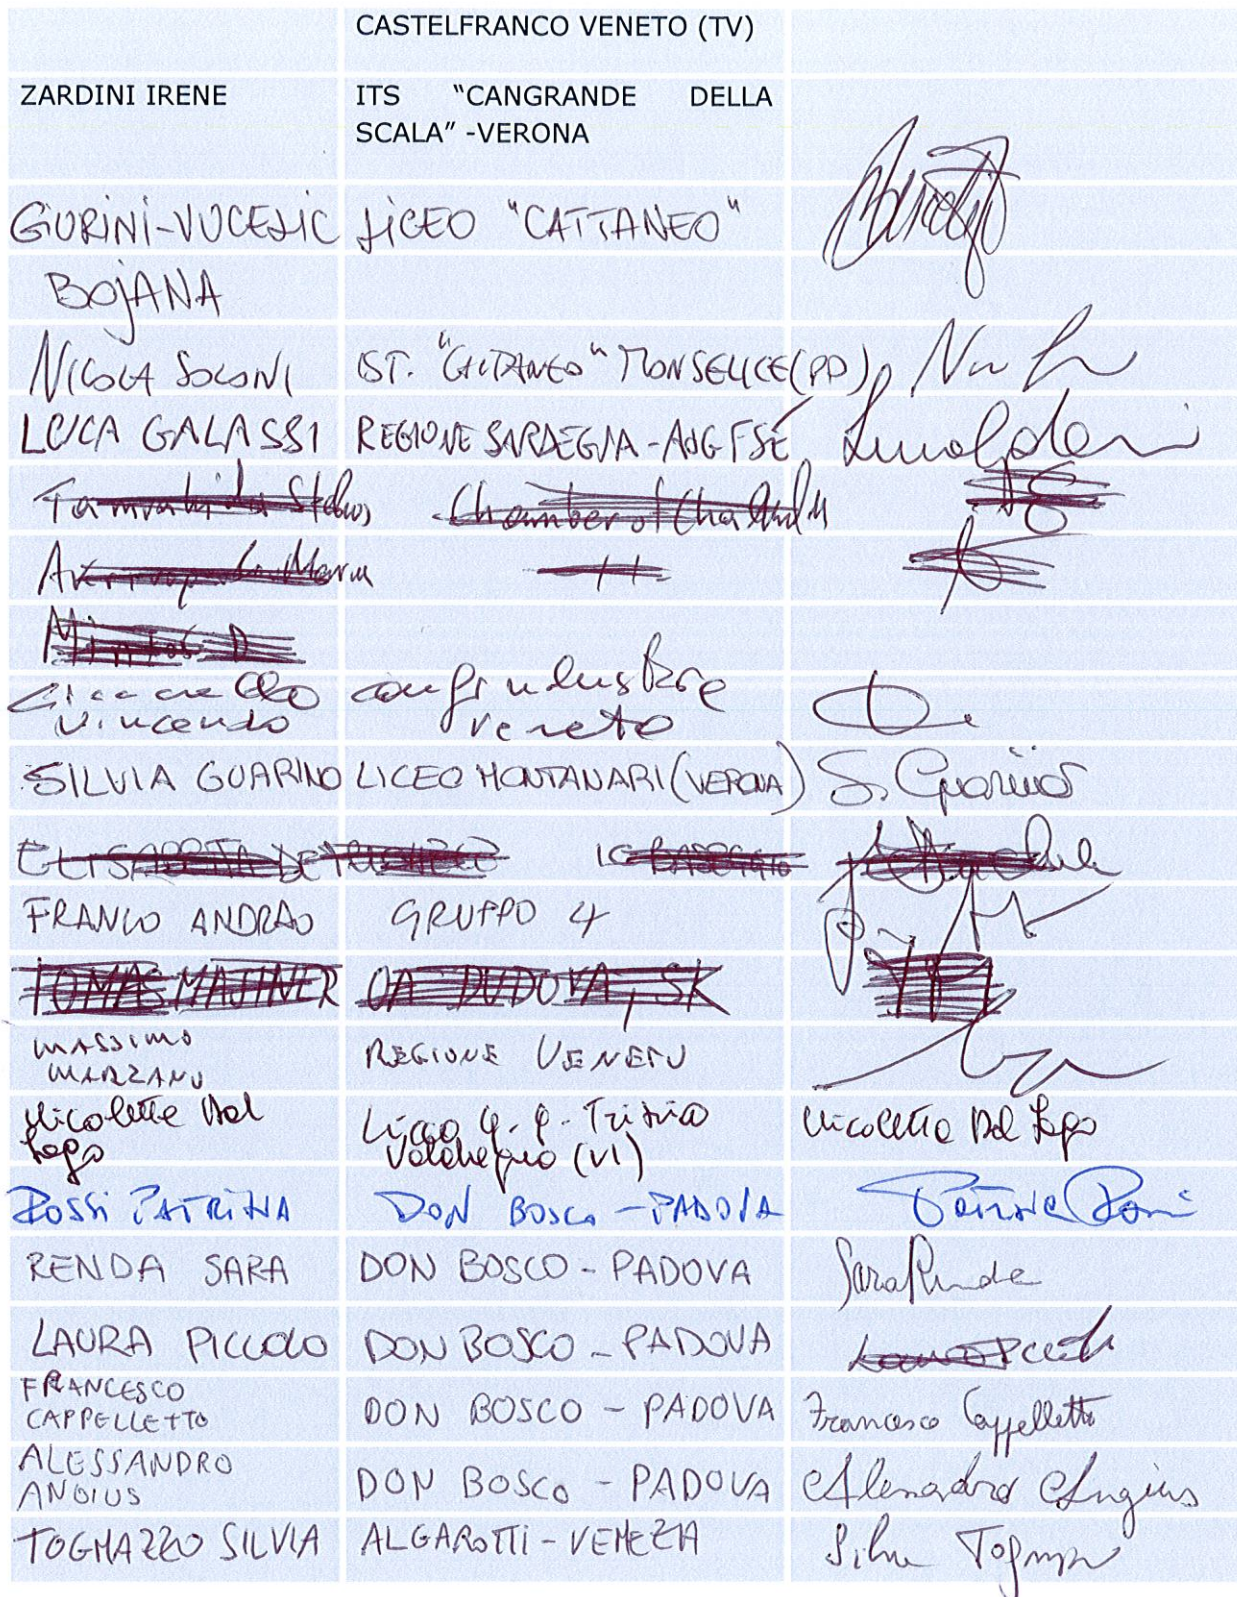 CASTELFRANCO VENETO (TV)
ZARDINI IRENE ITS "CANGRANDE DELLA
SCALA" -VERONA
GIURINI-VUCELIC LICEO "CATTANEO"
BOJANA
NICOLA SOLONI IST. "CATTANEO" MONSELICE (PD)
LUCA GALASSI REGIONE SARDEGNA - ADG FSE
Chamber of
vincenzo confindustria
veneto
SILVIA GUARINO LICEO MONTANARI (VERONA) S. Guarino
FRANCO ANDRAO GRUPPO 4
TOMAS MAJTNER OA DUDOVA, SK
MASSIMO REGIONE VENETO
MARZANO
Nicoletta Dal Liceo G. G. Trissino Nicoletta Dal Lago
Lago Valdagno (VI)
ROSSI PATRIZIA DON BOSCO - PADOVA Patrizia Rossi
RENDA SARA DON BOSCO - PADOVA Sara Renda
LAURA PICCOLO DON BOSCO - PADOVA
FRANCESCO
CAPPELLETTO DON BOSCO - PADOVA Francesco Cappelletto
ALESSANDRO
ANGIUS DON BOSCO - PADOVA Alessandro Angius
TOGNAZZO SILVIA ALGAROTTI - VENEZIA Silvia Tognazzo